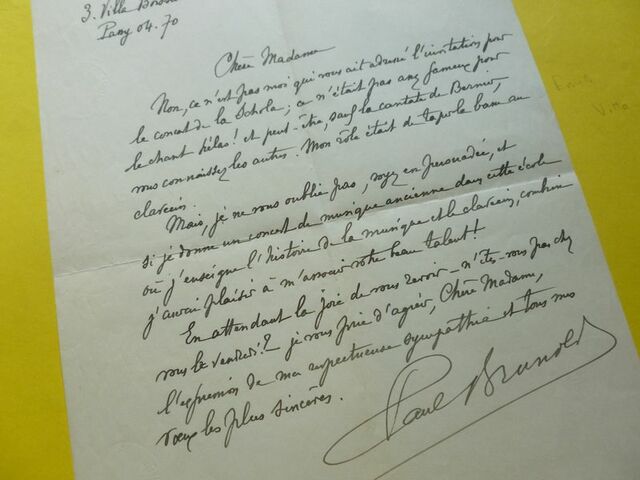 3. Villa Boss
Passy 04.70
Chère Madame
Non, ce n'est pas moi qui vous ait adressé l'invitation pour
le concert de la Schola ; ce n'était pas assez fameux pour
le chant hélas ! et peut-être, sauf la cantate de Bernier,
vous connaissez les autres. Mon rôle était de taper la basse au
clavecin.
Mais, je ne vous oublie pas, soyez en persuadée, et
si je donne un concert de musique ancienne dans cette école
où j'enseigne l'histoire de la musique et le clavecin, combien
j'aurai plaisir à m'associer votre beau talent !
En attendant la joie de vous revoir – n'êtes-vous pas chez
vous le vendredi ? je vous prie d'agréer, Chère Madame,
l'expression de ma respectueuse sympathie et tous mes
vœux les plus sincères.
Paul Brunold